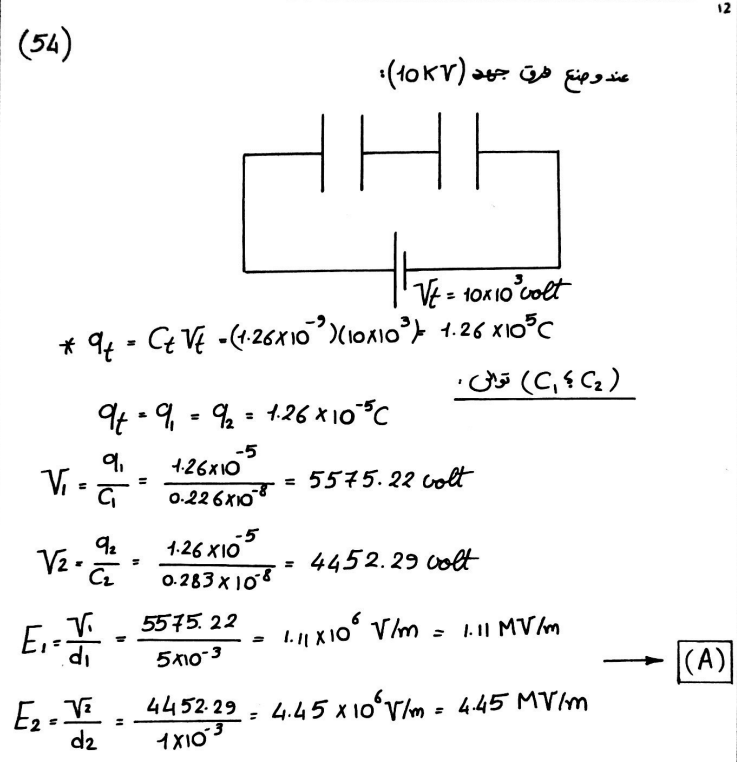 12
(54)
عند وضع فرق جهد (10KV):
Vt = 10x10³ volt
* qt = Ct Vt = (1.26x10⁻⁹)(10x10³) = 1.26 x10⁵C
(C₁ ؟ C₂) توالى .
qt = q₁ = q₂ = 1.26 x 10⁻⁵C
V₁ = q₁/C₁ = 1.26x10⁻⁵/0.226x10⁻⁸ = 5575.22 volt
V₂ = q₂/C₂ = 1.26 x10⁻⁵/0.283 x 10⁻⁸ = 4452.29 volt
E₁ = V₁/d₁ = 5575.22/5x10⁻³ = 1.11 x10⁶ V/m = 1.11 MV/m
→ (A)
E₂ = V₂/d₂ = 4452.29/1x10⁻³ = 4.45 x10⁶ V/m = 4.45 MV/m